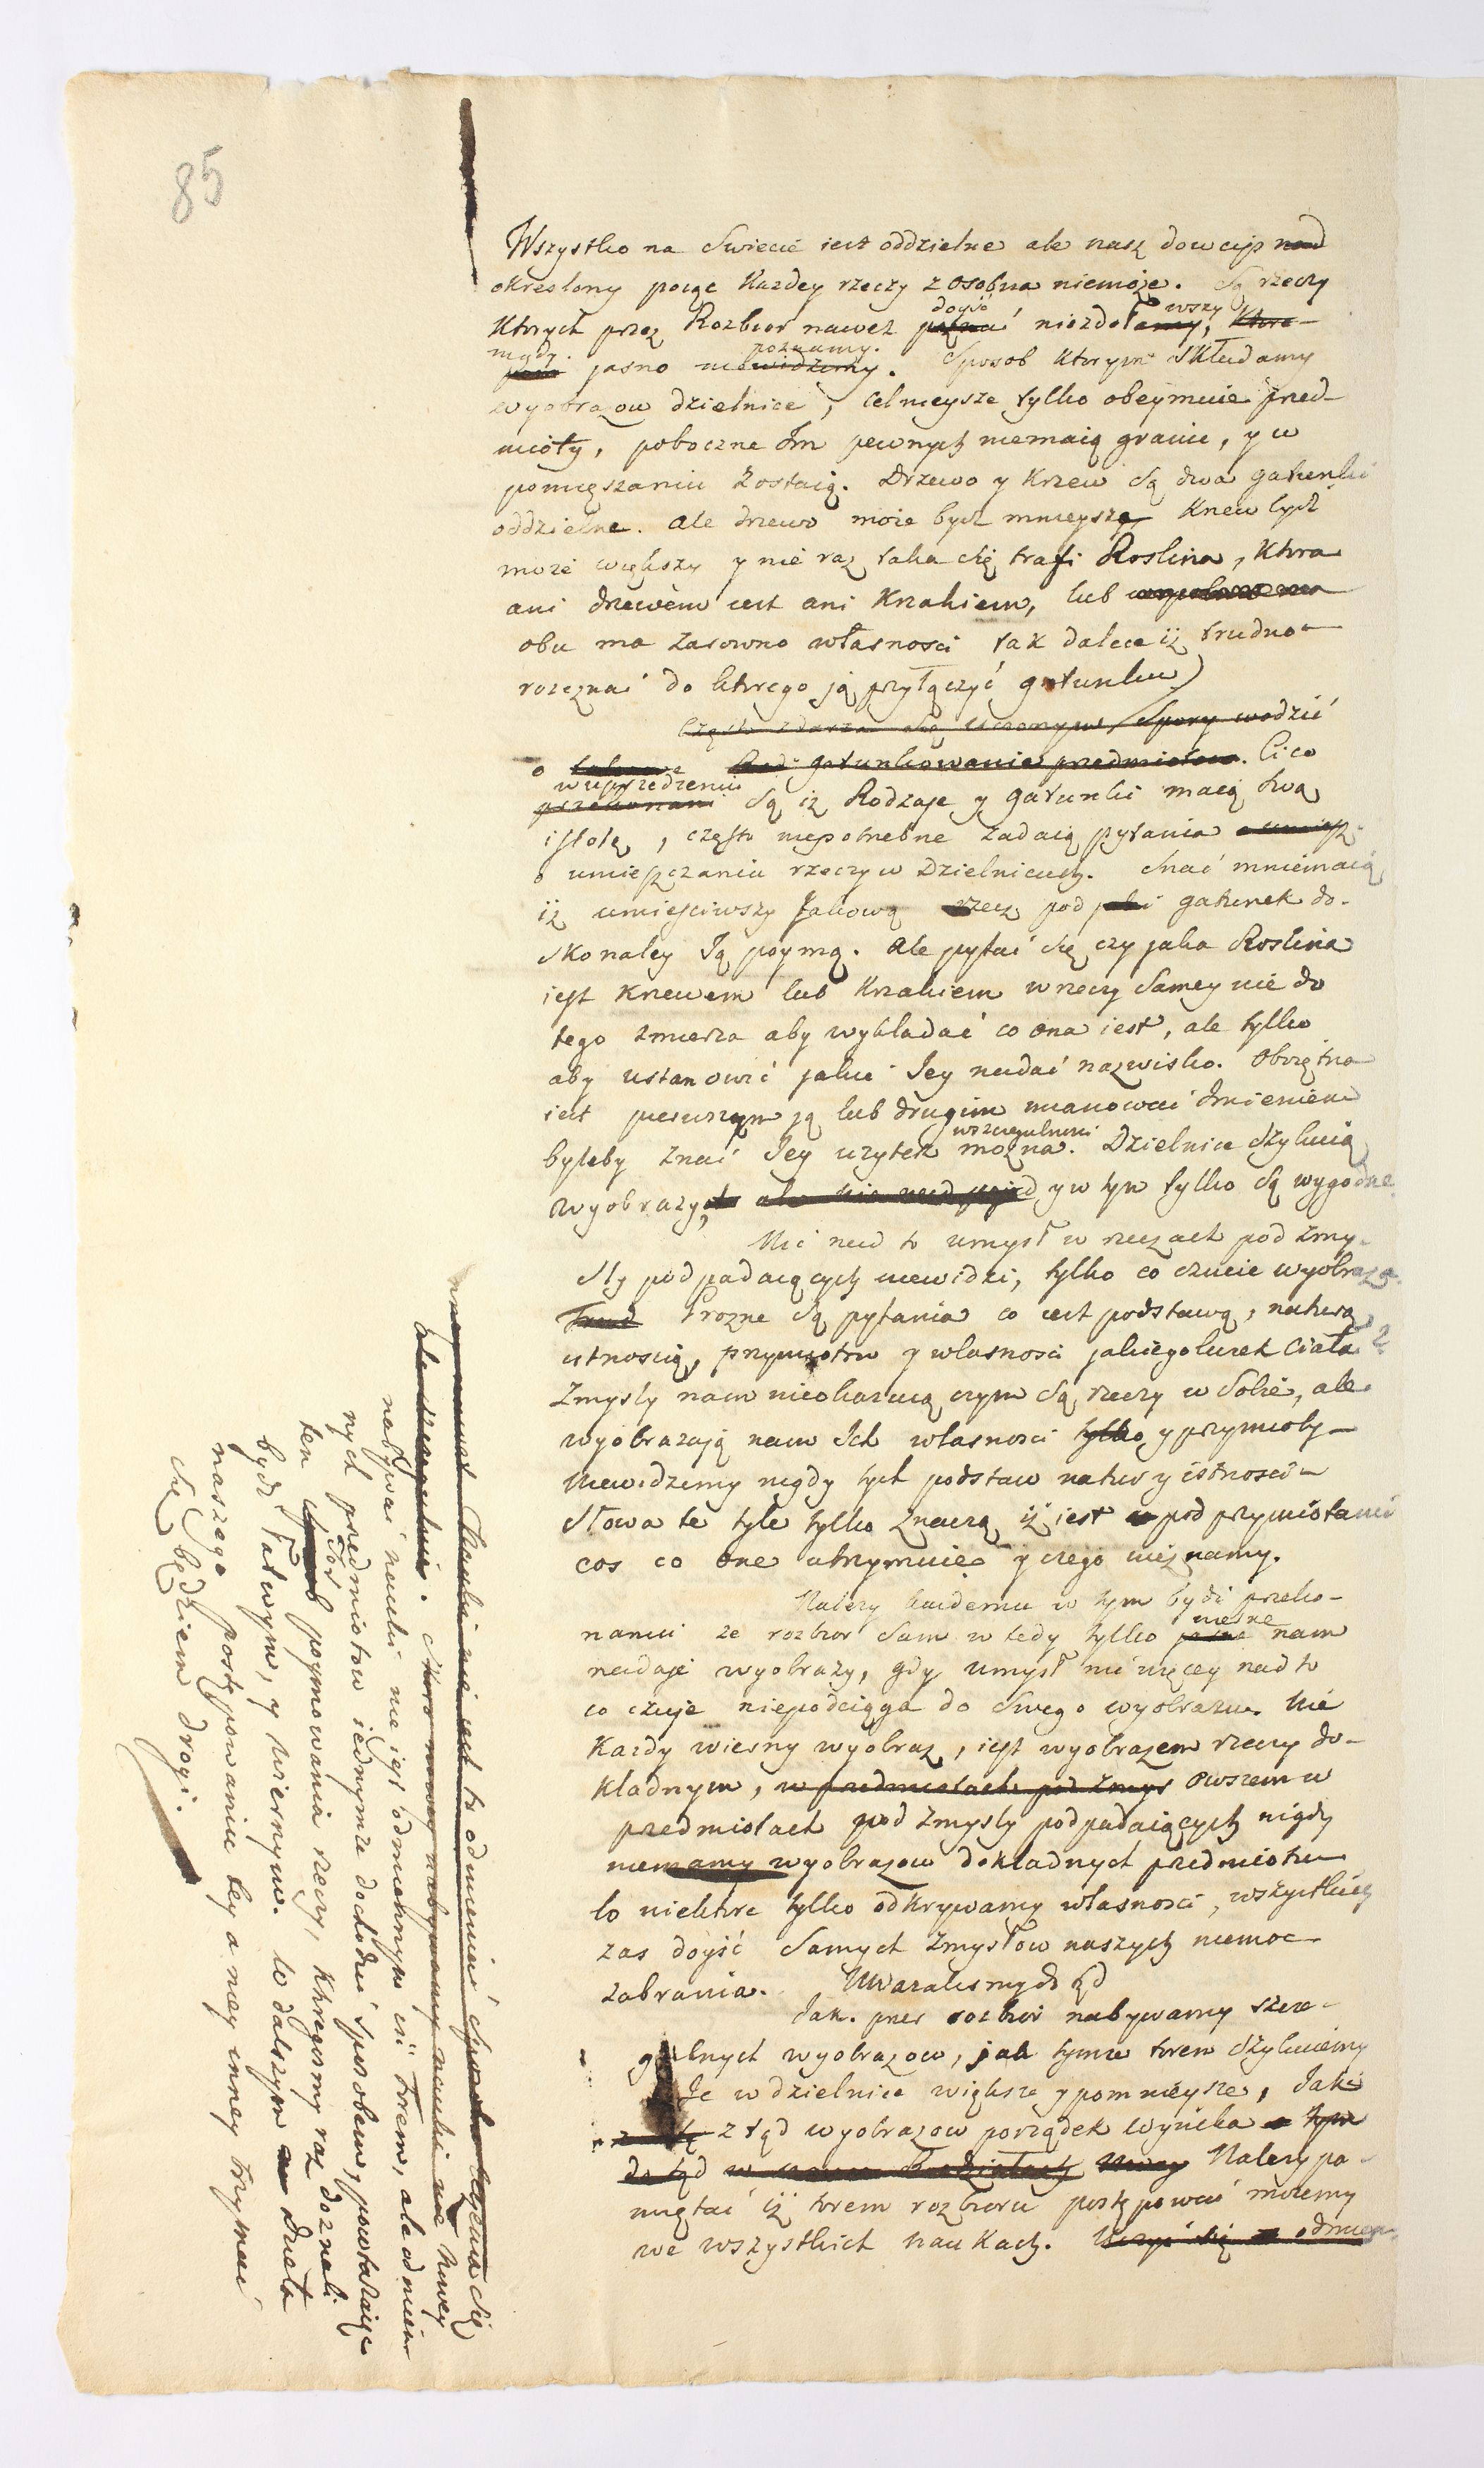 85
Wszystko na Swiecie iest oddzielne ale nasz dowcip nad
okreslony poiąc kazdey rzeczy z osobna niemoże. Są rzeczy
Ktorych przez Rozbior nawet dojść poznać niezdoławszy, ktore
nigdy jasno niewidziemy poznamy. Sposob ktorym składamy
wyobrazow dzielnice, celnieysze tylko obeymuie przed-
mioty, poboczne Im pewnych niemaią granic, y w
pomięszaniu zostaią. Drzewo y Krzew są dwa gatunki
oddzielne. ale drzewo może bydź mnieysze, Krzew bydź
może większy y nie raz taka się trafi Roslina, Ktora
ani drzewem iest ani Krzakiem, lub
obu ma zarowno własnosci tak dalece iż trudno
rozeznać do ktorego ją przyłączyć gatunku
często zdarza się uczonym Spory wodzić
o gatunkowanie przedmiotow. Ci co
w uprzedzeniu przekonani są iz Rodzaje y gatunki maią swą
istotę, często niepotrzebne zadaią pytania
o umieszczaniu rzeczy w Dzielnicach. Snać mniemaią
iż umieściwszy Jakową rzecz pod jaki gatunek do-
skonaley Ją poymą. Ale pytać się czy jaka Roslina
jest Krzewem lub Krzakiem w rzeczy Samey nie do
tego zmierza aby wykładać co ona iest, ale tylko
aby ustanowić jakie Jey nadać nazwisko. Oboiętna
iest pierwszym ją lub drugim mianować Imieniem
byleby znać Jey użytek w szczegulnosci można. Dzielnice szykuią
wyobrazy, ale nie nad y w tym tylko są wygodne
Nic nad to umysł w rzeczach pod zmy-
sły podpadaiących niewidzi, tylko co czucie wyobraza.
Prozne są pytania co iest podstawą, naturą,
istnoscią, przymiotow y własnosci jakiegokolwiek Ciała?
Zmysły nam nieokazuią czym są rzeczy w Sobie, ale
wyobrazają nam Ich własnosci tylko y przymioty
Niewidziemy nigdy tych podstaw natur y istnosci
Słowa te tyle tylko znaczą iż iest pod przymiotami
cos co one utrzymuie y czego nieznamy.
Nalezy kazdemu w tym bydź przeko-
nanu ze rozbior Sam w tedy tylko wierne nam
nadaje wyobrazy, gdy umysł nic więcey nad to
co czuje niepodciąga do Swego wyobrazu. Nie
Kazdy wierny wyobraz, iest wyobrazem rzeczy do-
kładnym, w przedmiotach pod Zmys owszem w
przedmiotach pod zmysły podpadaiących nigdy
niemamy wyobrazow dokładnych przedmiotu
bo niektore tylko odkrywamy własnosci, wszystkich
zas dojść Samych Zmysłow naszych niemoc
zabrania. Uwazalismy do tąd
Jak. przez rozbior nabywamy szcze-
gulnych wyobrazow, jak tymże torem szykuiemy
Je w dzielnice większe y pomnieysze, Jaki
z tąd wyobrazow porządek wynika
do tąd Nalezy pa-
miętać iż torem rozbioru postępować możemy
we wszystkich naukach. Uczyć się odmien-
nauki nie iest to odmieniać Sposob uczenia się
ale szczegulnie. Skoro nowey nabywamy nauki
nabywać nauki nie jest odmiennym iść Torem, ale odmien-
nych przedmiotow iednymże dochodzić sposobem, powtarzaiąc
ten Tor poymowania rzeczy, ktoregosmy raz doznali
bydź łatwym, y wiernym. w dalszym Dzieła
naszego postępowaniu tey a niey inney trzymać
się będziem drogi.